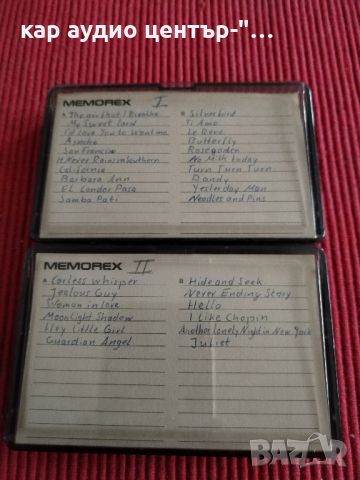 кар аудио център-"...
MEMOREX I
A The air that I Breathe
My Sweet Lord
I'd Love You to Want me
Apache
San Francisco
It Never Rains in Southern
California
Barbara Ann
EL Condor Pasa
Samba Pati
B Silverbird
Ti Amo
Le Reve
Butterfly
Rosegarden
No Milk today
Turn Turn Turn
Dandy
Yesterday Man
Needles and Pins
MEMOREX II
A Carless whisper
Jealous Guy
Woman in love
MoonLight Shadow
Hey Little Girl
Guardian Angel
B Hide and Seek
Never Ending Story
Hello
I Like Chopin
Another lonely Night in New York
Juliet
BAZAR